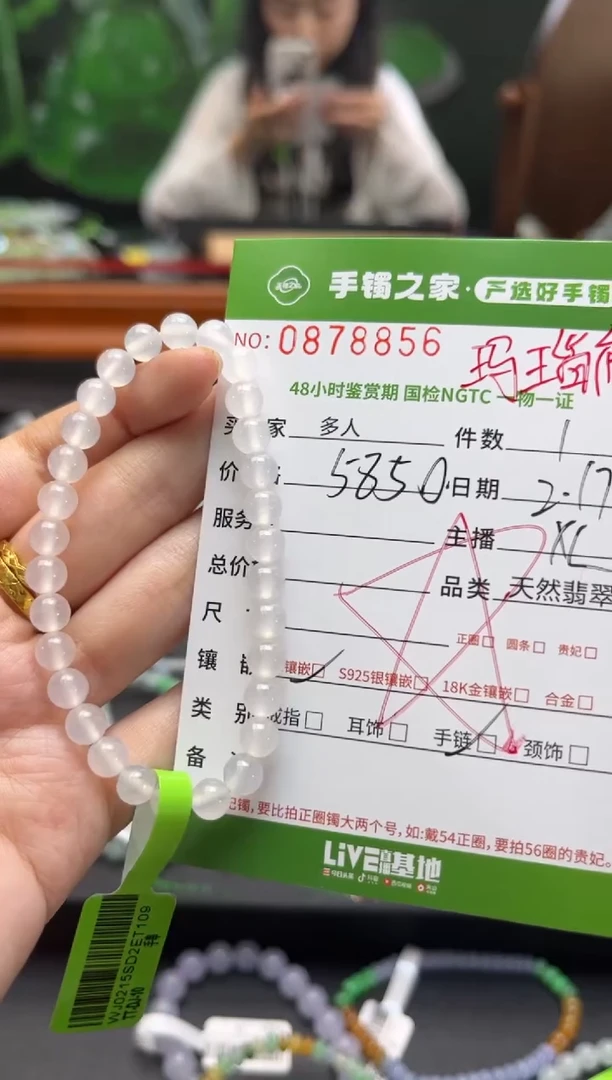 手镯之家·严选好手镯
NO:0878856
玛瑙
48小时鉴赏期 国检NGTC 一物一证
买家 多人 件数 1
价 5850 日期 2.17
服务 主播 XL
总价 品类 天然翡翠
尺 正圈□ 圆条□ 贵妃□
镶嵌 镶嵌□ S925银镶嵌□ 18K金镶嵌□ 合金□
类别 戒指□ 耳饰□ 手链□ 颈饰□
备
镯,要比拍正圈镯大两个号,如:戴54正圈,要拍56圈的贵妃。
LiVE直播基地
WJ0215SD2ET109